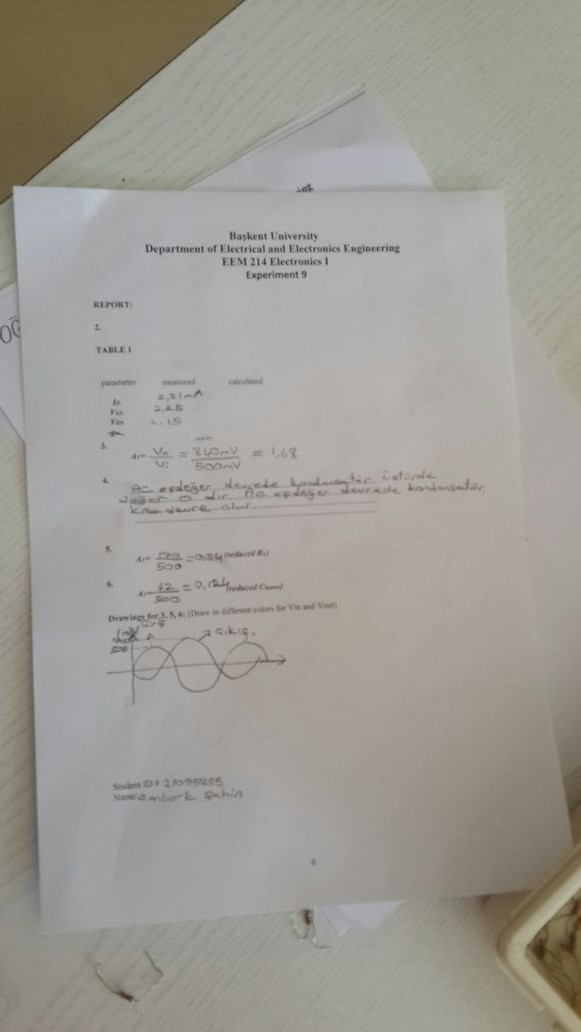 Başkent University
Department of Electrical and Electronics Engineering
EEM 214 Electronics I
Experiment 9
REPORT:
2.
TABLE 1
parameter measured calculated
2,21mA
2,28
2.15
3.
Av= Vo/Vi = 840mV/500mV = 1,68
4. AC eşdeğer devrede kondansatör üstünde
değer 0 dır. AC eşdeğer devrede kondansatör
kısa devre olur.
5.
Av= 170/500 = 0,34 (reduced RL)
6.
Av= 62/500 = 0,124 (reduced)
Drawings for 3, 5, 6: (Draw in different colors for Vin and Vout)
Giriş
500
Çıkış.
Student ID#
Name: Şahin
6